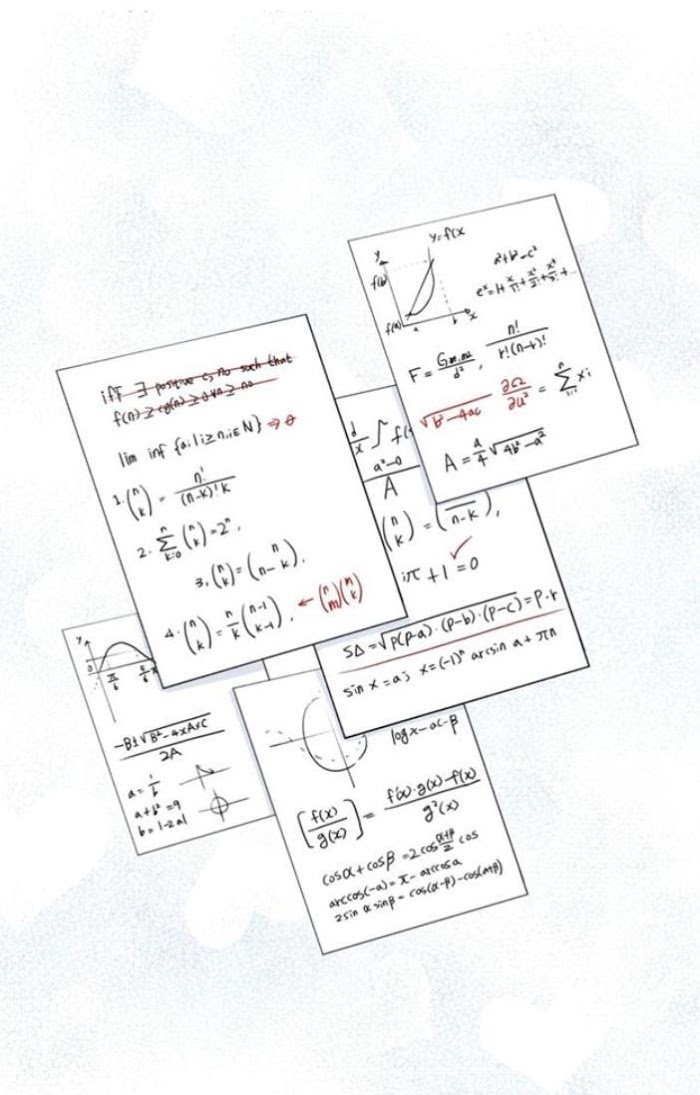 y=f(x
y
f(b)
f(a)
a
b
x
a²+b²=c²
eˣ=1+x/1!+x²/2!+x³/3!+...
F = Gm₁m₂/d² , n!/r!(n-r)!
√b²-4ac ∂Ω/∂u² = Σxi
A = a/4 √4b²-a²
iff ∃ positive c, n₀ such that
f(n) ≥ cg(n) ≥ 0 ∀n ≥ n₀
lim inf {ai | i≥n, i∈N} ⇒ θ
1. (n k) = n!/(n-k)!k
2. Σ k=0 n (n k) = 2ⁿ,
3. (n k) = (n n-k).
4. (n k) = n/k (n-1 k-1), ← (n m)(m k)
d/x ∫ f(
a²-0
A
(n k) = (n-k),
iπ +1=0
SΔ=√P(P-a)·(P-b)·(P-c) = P·r
sin x = a; x=(-1)ⁿ arcsin a + πn
y
0
π/6
x
-B±√B²-4xAxC
2A
a = 1/b
a+b²=9
b=1-2a1
log x-ac-β
[f(x)/g(x)] = f'(x)·g(x)-f(x)/g²(x)
cosα+cosβ=2cos α+β/2 cos
arccos(-a)=π-arccosa
2sin α sinβ = cos(α-β)-cos(α+β)